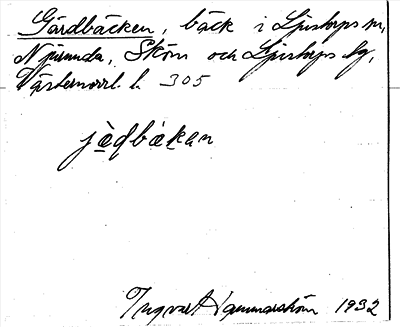 Gärdbäcken, bäck i Ljustorps sn,
Njurunda, Sköns och Ljustorps tg,
Västernorrl. l. 305
jædbækan
Ingvar Hammarström 1932